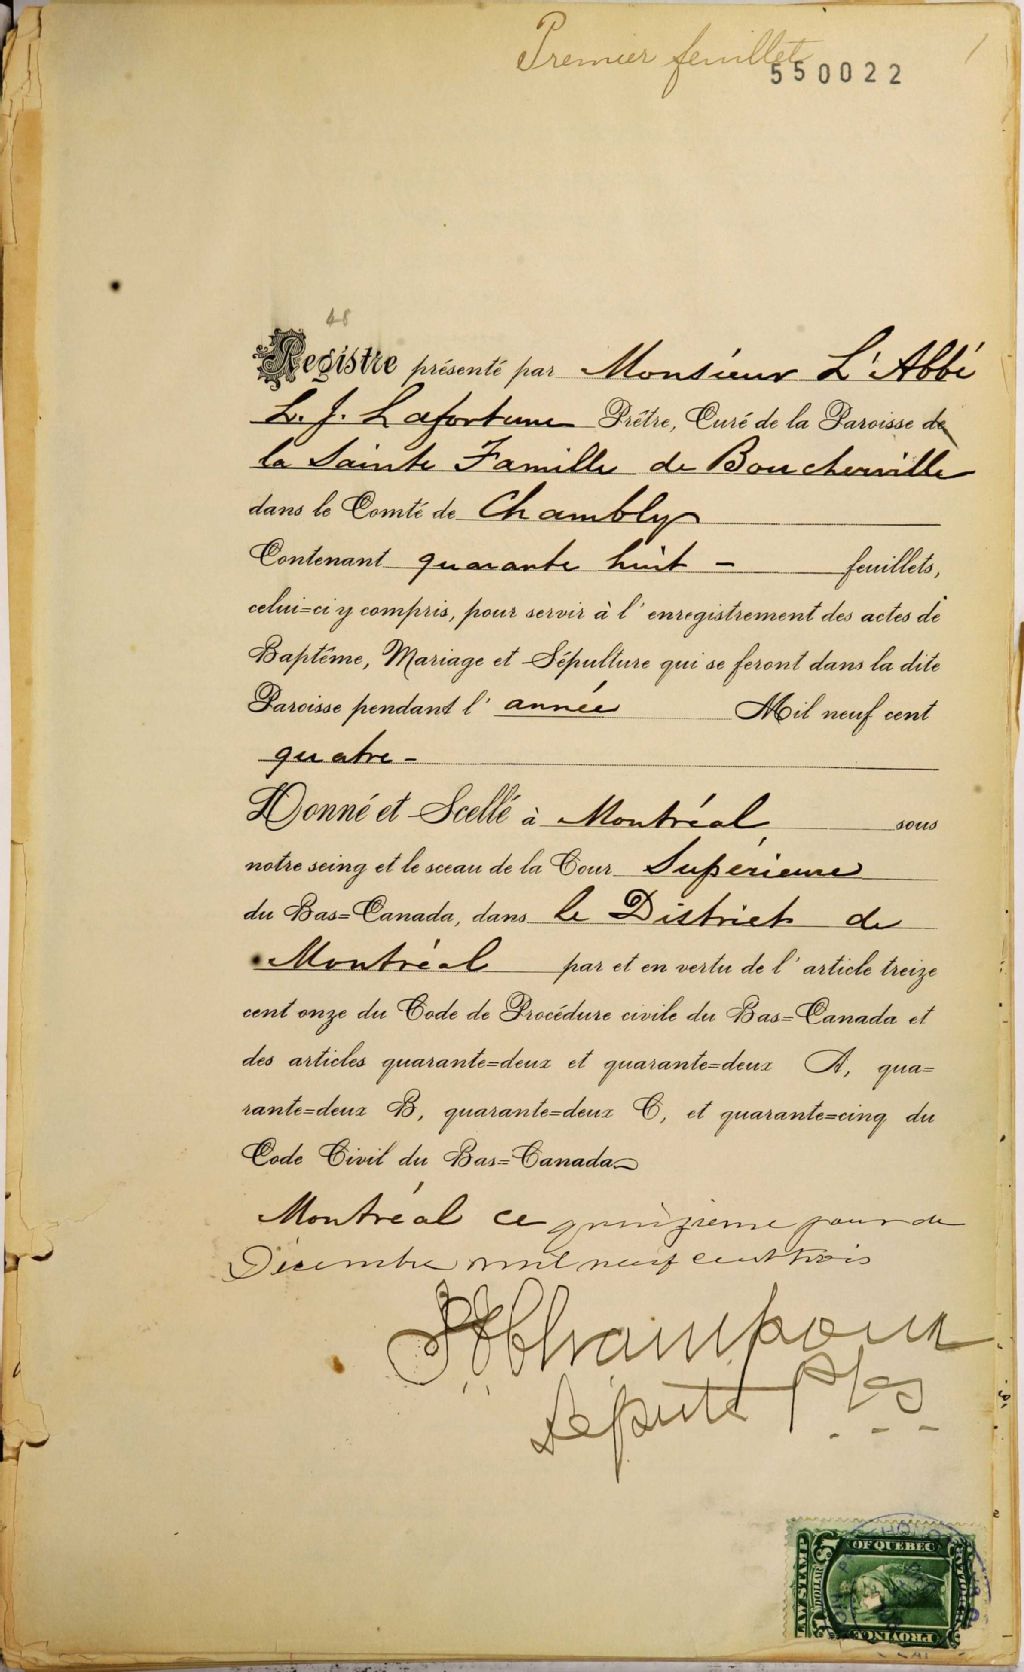 Premier feuillet
1
550022
48
Registre présenté par Monsieur L'Abbé
L. J. Lafortune Prêtre, Curé de la Paroisse de
la Sainte Famille de Boucherville
dans le Comté de Chambly
Contenant quarante huit - feuillets,
celui=ci y compris, pour servir à l'enregistrement des actes de
Baptême, Mariage et Sépulture qui se feront dans la dite
Paroisse pendant l'année Mil neuf cent
quatre -
Donné et Scellé à Montréal, sous
notre seing et le sceau de la Cour Supérieure
du Bas=Canada, dans le District de
Montréal par et en vertu de l'article treize
cent onze du Code de Procédure civile du Bas=Canada et
des articles quarante=deux et quarante=deux A, qua=
rante=deux B, quarante=deux C, et quarante=cinq du
Code Civil du Bas=Canada
Montréal ce quinzième jour de
Décembre mil neuf cent trois
Champoux
Député P C S
LAW STAMP
$1 DOLLAR
PROVINCE OF QUEBEC